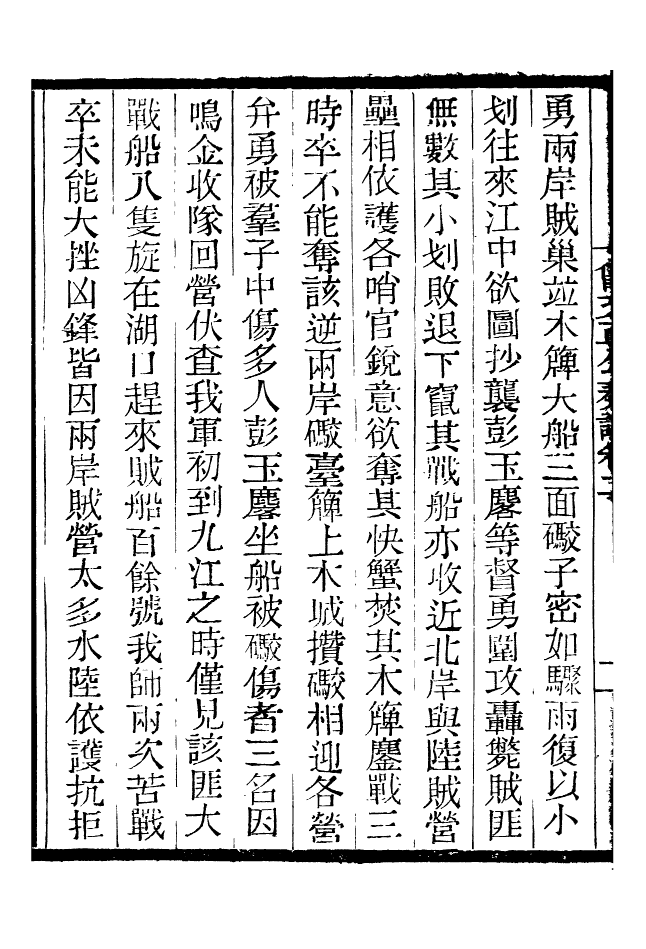 勇兩岸賊巢竝木簰大船三面礮子密如驟雨復以小
划往來江中欲圖抄襲彭玉麐等督勇圍攻轟斃賊匪
無數其小划敗退下竄其戰船亦收近北岸與陸賊營
壘相依護各哨官銳意欲奪其快蟹焚其木簰鏖戰三
時卒不能奪該逆兩岸礮臺簰上木城攢礮相迎各營
弁勇被羣子中傷多人彭玉麐坐船被礮傷者三名因
鳴金收隊回營伏查我軍初到九江之時僅見該匪大
戰船八隻旋在湖口趕來賊船百餘號我師兩次苦戰
卒未能大挫凶鋒皆因兩岸賊營太多水陸依護抗拒